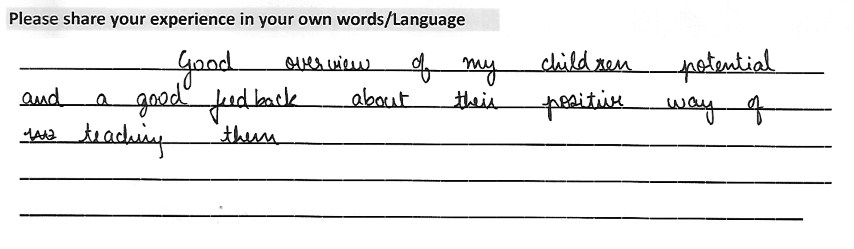 Please share your experience in your own words/Language
Good overview of my children potential
and a good feedback about their positive way of
teaching them